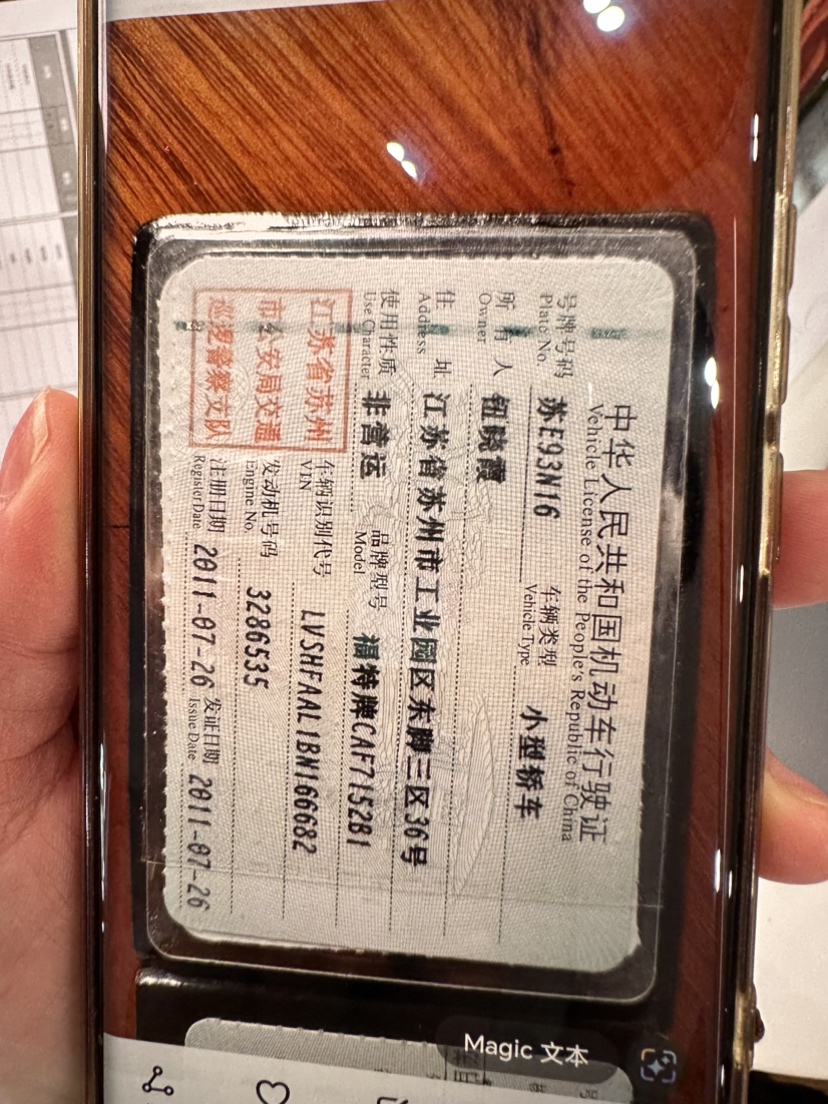 中华人民共和国机动车行驶证
Vehicle License of the People's Republic of China
号牌号码 苏E93N16 车辆类型 小型轿车
Plate No. Vehicle Type
所有人 钮晓霞
Owner
住址 江苏省苏州市工业园区东脚三区36号
Address
使用性质 非营运 品牌型号 福特牌CAF7152B1
Use Character Model
江苏省苏州
市公安局交通
巡逻警察支队
车辆识别代号 LVSHFAAL1BN166682
VIN
发动机号码 3286535
Engine No.
注册日期 2011-07-26 发证日期 2011-07-26
Register Date Issue Date
Magic 文本